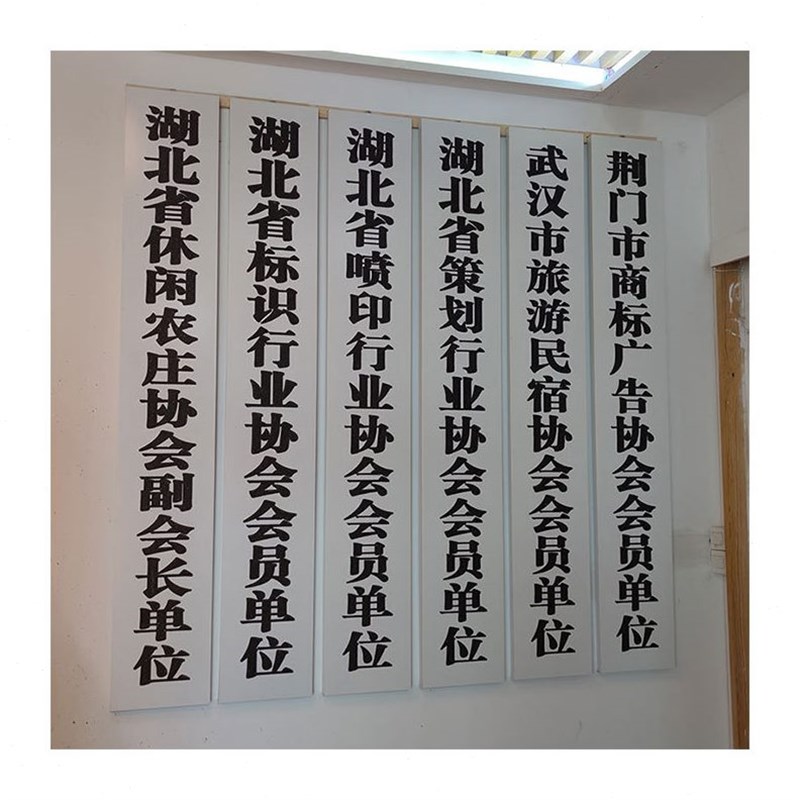 湖北省休闲农庄协会副会长单位
湖北省标识行业协会会员单位
湖北省喷印行业协会会员单位
湖北省策划行业协会会员单位
武汉市旅游民宿协会会员单位
荆门市商标广告协会会员单位